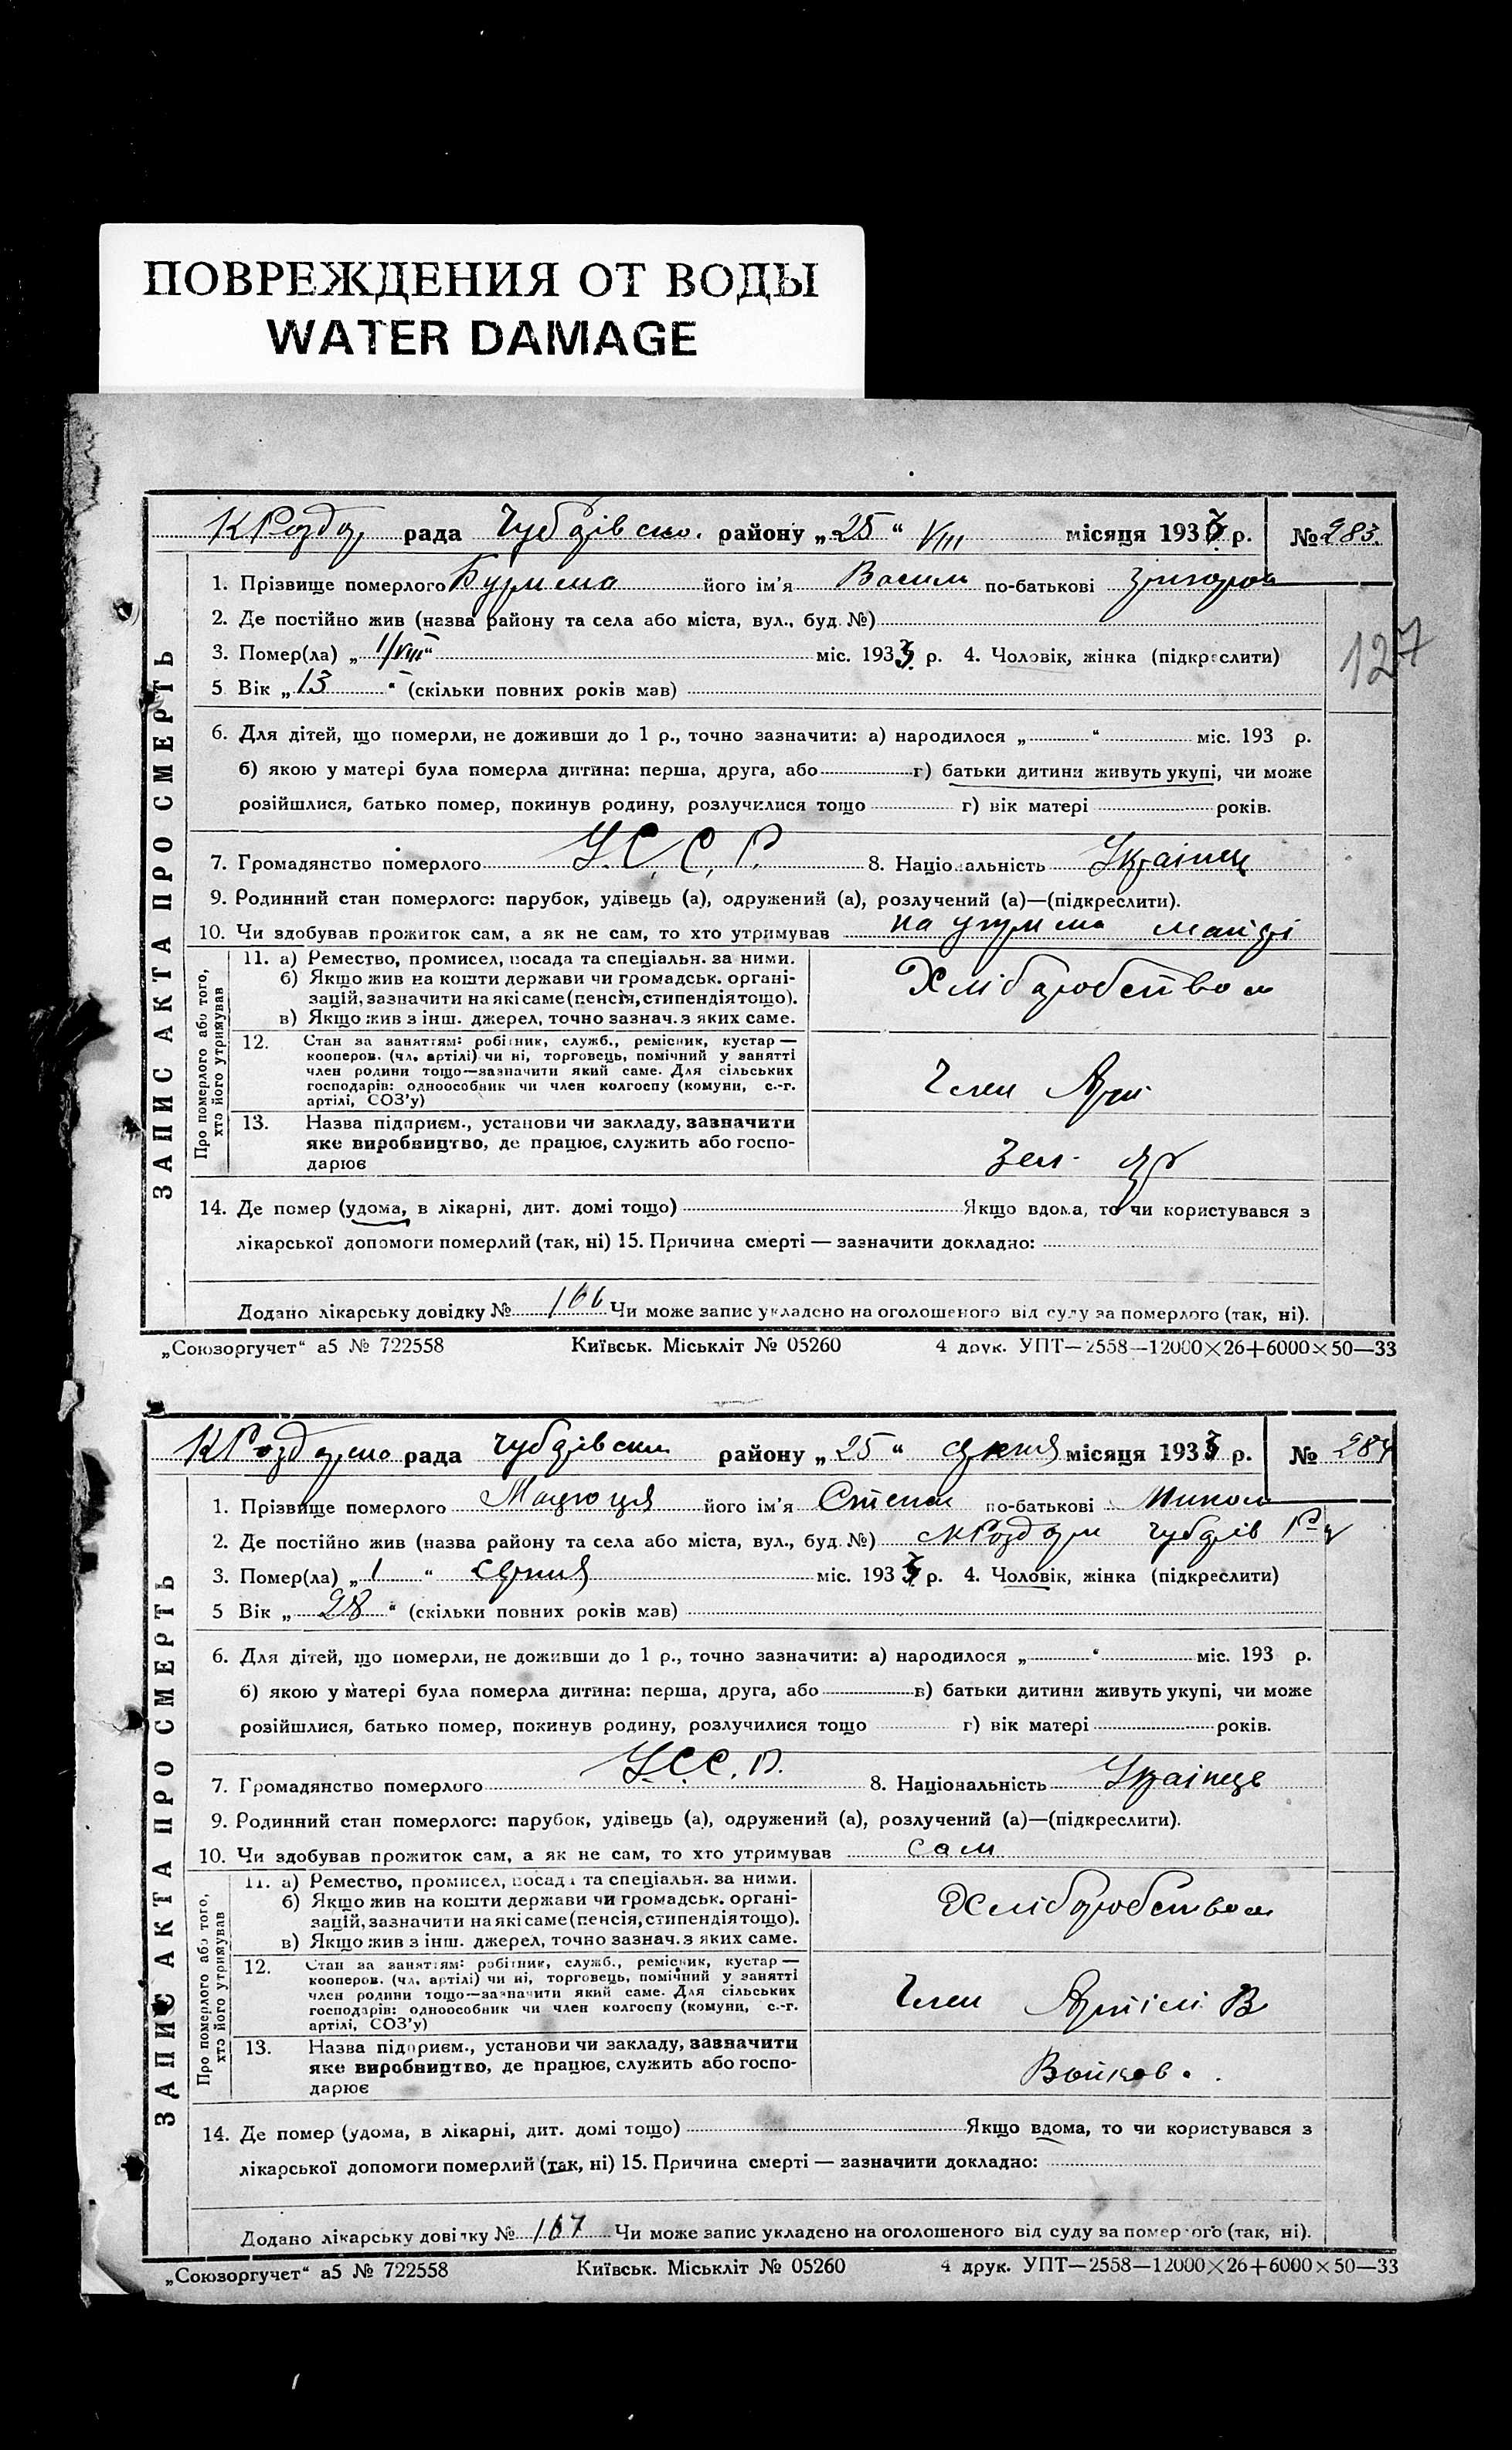 ПОВРЕЖДЕНИЯ ОТ ВОДЫ
WATER DAMAGE
рада Чубарівсько. району „25“ VIII місяця 1933 р. № 283.
127
ЗАПИС АКТА ПРО СМЕРТЬ
1. Прізвище померлого Бурима його ім'я Василь по-батькові Григоров
2. Де постійно жив (назва району та села або міста, вул., буд. №)
3. Помер(ла) „1/VIII“ міс. 1933 р. 4. Чоловік, жінка (підкреслити)
5 Вік „13“ (скільки повних років мав)
6. Для дітей, що померли, не доживши до 1 р., точно зазначити: а) народилося „ “ міс. 193 р.
б) якою у матері була померла дитина: перша, друга, або г) батьки дитини живуть укупі, чи може
розійшлися, батько помер, покинув родину, розлучилися тощо г) вік матері років.
7. Громадянство померлого У.С.С.Р. 8. Національність Українец
9. Родинний стан померлого: парубок, удівець (а), одружений (а), розлучений (а)—(підкреслити).
10. Чи здобував прожиток сам, а як не сам, то хто утримував на утрима матері
Про померлого або того, хто його утримував
11. а) Ремество, промисел, посада та спеціальн. за ними.
б) Якщо жив на кошти держави чи громадськ. органі-
зацій, зазначити на які саме (пенсія, стипендія тощо).
в) Якщо жив з інш. джерел, точно зазнач. з яких саме.
Хліборобством
12. Стан за заняттям: робітник, служб., ремісник, кустар —
кооперов. (чл. артілі) чи ні, торговець, помічний у занятті
член родини тощо—зазначити який саме. Для сільських
господарів: одноособник чи член колгоспу (комуни, с.-г.
артілі, СОЗ'у)
Член Арт
13. Назва підприєм., установи чи закладу, зазначити
яке виробництво, де працює, служить або госпо-
дарює
Зел. яр
14. Де помер (удома, в лікарні, дит. домі тощо) Якщо вдома, то чи користувався з
лікарської допомоги померлий (так, ні) 15. Причина смерті — зазначити докладно:
Додано лікарську довідку № 166 Чи може запис укладено на оголошеного від суду за померлого (так, ні).
„Союзоргучет“ а5 № 722558 Київськ. Міськліт № 05260 4 друк. УПТ—2558—12000×26+6000×50—33
рада Чубарівськ району „25“ серпня місяця 1933 р. № 284
ЗАПИС АКТА ПРО СМЕРТЬ
1. Прізвище померлого Мацюця його ім'я Степан по-батькові Микол
2. Де постійно жив (назва району та села або міста, вул., буд. №) Чубарів Р-н
3. Помер(ла) „1“ серпня міс. 1933 р. 4. Чоловік, жінка (підкреслити)
5 Вік „28“ (скільки повних років мав)
6. Для дітей, що померли, не доживши до 1 р., точно зазначити: а) народилося „ “ міс. 193 р.
б) якою у матері була померла дитина: перша, друга, або в) батьки дитини живуть укупі, чи може
розійшлися, батько помер, покинув родину, розлучилися тощо г) вік матері років.
7. Громадянство померлого У.С.С.Р. 8. Національність Українець
9. Родинний стан померлого: парубок, удівець (а), одружений (а), розлучений (а)—(підкреслити).
10. Чи здобував прожиток сам, а як не сам, то хто утримував сам
Про померлого або того, хто його утримував
11. а) Ремество, промисел, посада та спеціальн. за ними.
б) Якщо жив на кошти держави чи громадськ. органі-
зацій, зазначити на які саме (пенсія, стипендія тощо).
в) Якщо жив з інш. джерел, точно зазнач. з яких саме.
Хліборобством
12. Стан за заняттям: робітник, служб., ремісник, кустар —
кооперов. (чл. артілі) чи ні, торговець, помічний у занятті
член родини тощо—зазначити який саме. Для сільських
господарів: одноособник чи член колгоспу (комуни, с.-г.
артілі, СОЗ'у)
Член Артілі В
13. Назва підприєм., установи чи закладу, зазначити
яке виробництво, де працює, служить або госпо-
дарює
Войков.
14. Де помер (удома, в лікарні, дит. домі тощо) Якщо вдома, то чи користувався з
лікарської допомоги померлий (так, ні) 15. Причина смерті — зазначити докладно:
Додано лікарську довідку № 167 Чи може запис укладено на оголошеного від суду за померлого (так, ні).
„Союзоргучет“ а5 № 722558 Київськ. Міськліт № 05260 4 друк. УПТ—2558—12000×26+6000×50—33